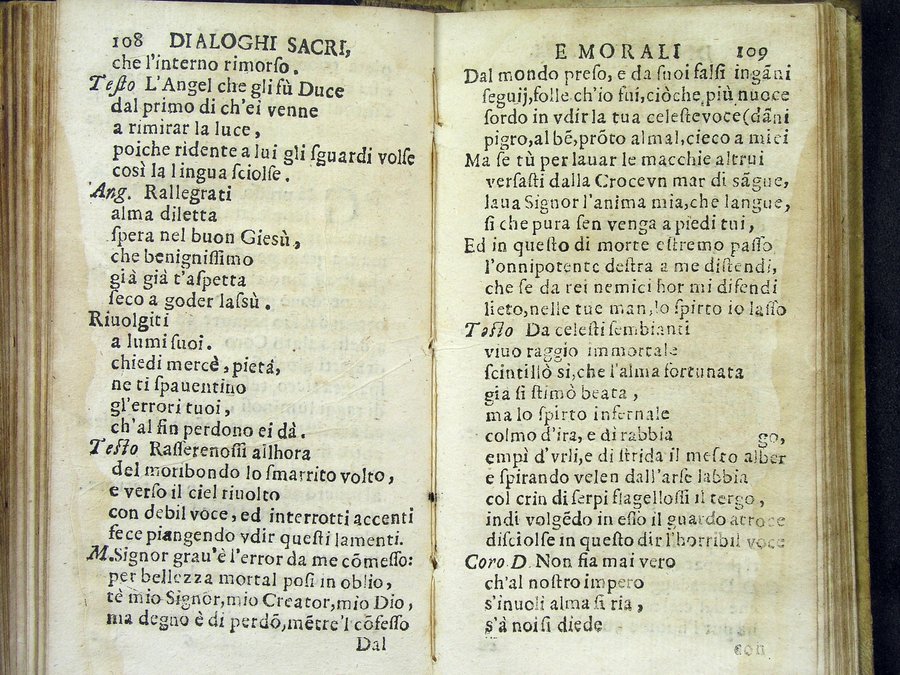 108 DIALOGHI SACRI,
che l'interno rimorſo.
Teſto L'Angel che gli fù Duce
dal primo di ch'ei venne
a rimirar la luce,
poiche ridente a lui gli ſguardi volſe
così la lingua ſciolſe.
Ang. Rallegrati
alma diletta
ſpera nel buon Giesù,
che benigniſſimo
già già t'aſpetta
ſeco a goder laſsù.
Riuolgiti
a lumi ſuoi.
chiedi mercè, pietà,
ne ti ſpauentino
gl'errori tuoi,
ch'al fin perdono ei dà.
Teſto Raſſerenoſſi allhora
del moribondo lo ſmarrito volto,
e verſo il ciel riuolto
con debil voce, ed interrotti accenti
fece piangendo vdir queſti lamenti.
M. Signor grau'è l'error da me cõmeſſo:
per bellezza mortal poſi in oblio,
tè mio Signor, mio Creator, mio Dio,
ma degno è di perdõ, mẽtre'l cõfeſſo
Dal
E MORALI 109
Dal mondo preſo, e da ſuoi falſi ingãni
ſeguij, folle ch'io fui, ciòche più nuoce
ſordo in vdir la tua celeſte voce (dãni
pigro, al bẽ, prõto al mal, cieco a miei
Ma ſe tù per lauar le macchie altrui
verſaſti dalla Croce vn mar di sãgue,
laua Signor l'anima mia, che langue,
ſi che pura ſen venga a piedi tui,
Ed in queſto di morte eſtremo paſſo
l'onnipotente deſtra a me diſtendi,
che ſe da rei nemici hor mi difendi
lieto, nelle tue man, lo ſpirto io laſſo
Teſto Da celeſti ſembianti
viuo raggio immortale
ſcintillò sì, che l'alma fortunata
già ſi ſtimò beata,
ma lo ſpirto infernale
colmo d'ira, e di rabbia go,
empì d'vrli, e di ſtrida il meſto alber
e ſpirando velen dall'arſe labbia
col crin di ſerpi flagelloſſi il tergo,
indi volgẽdo in eſſo il guardo atroce
diſciolſe in queſto dir l'horribil voce
Coro D. Non fia mai vero
ch'al noſtro impero
s'inuoli alma ſi ria,
s'à noi ſi diede
con